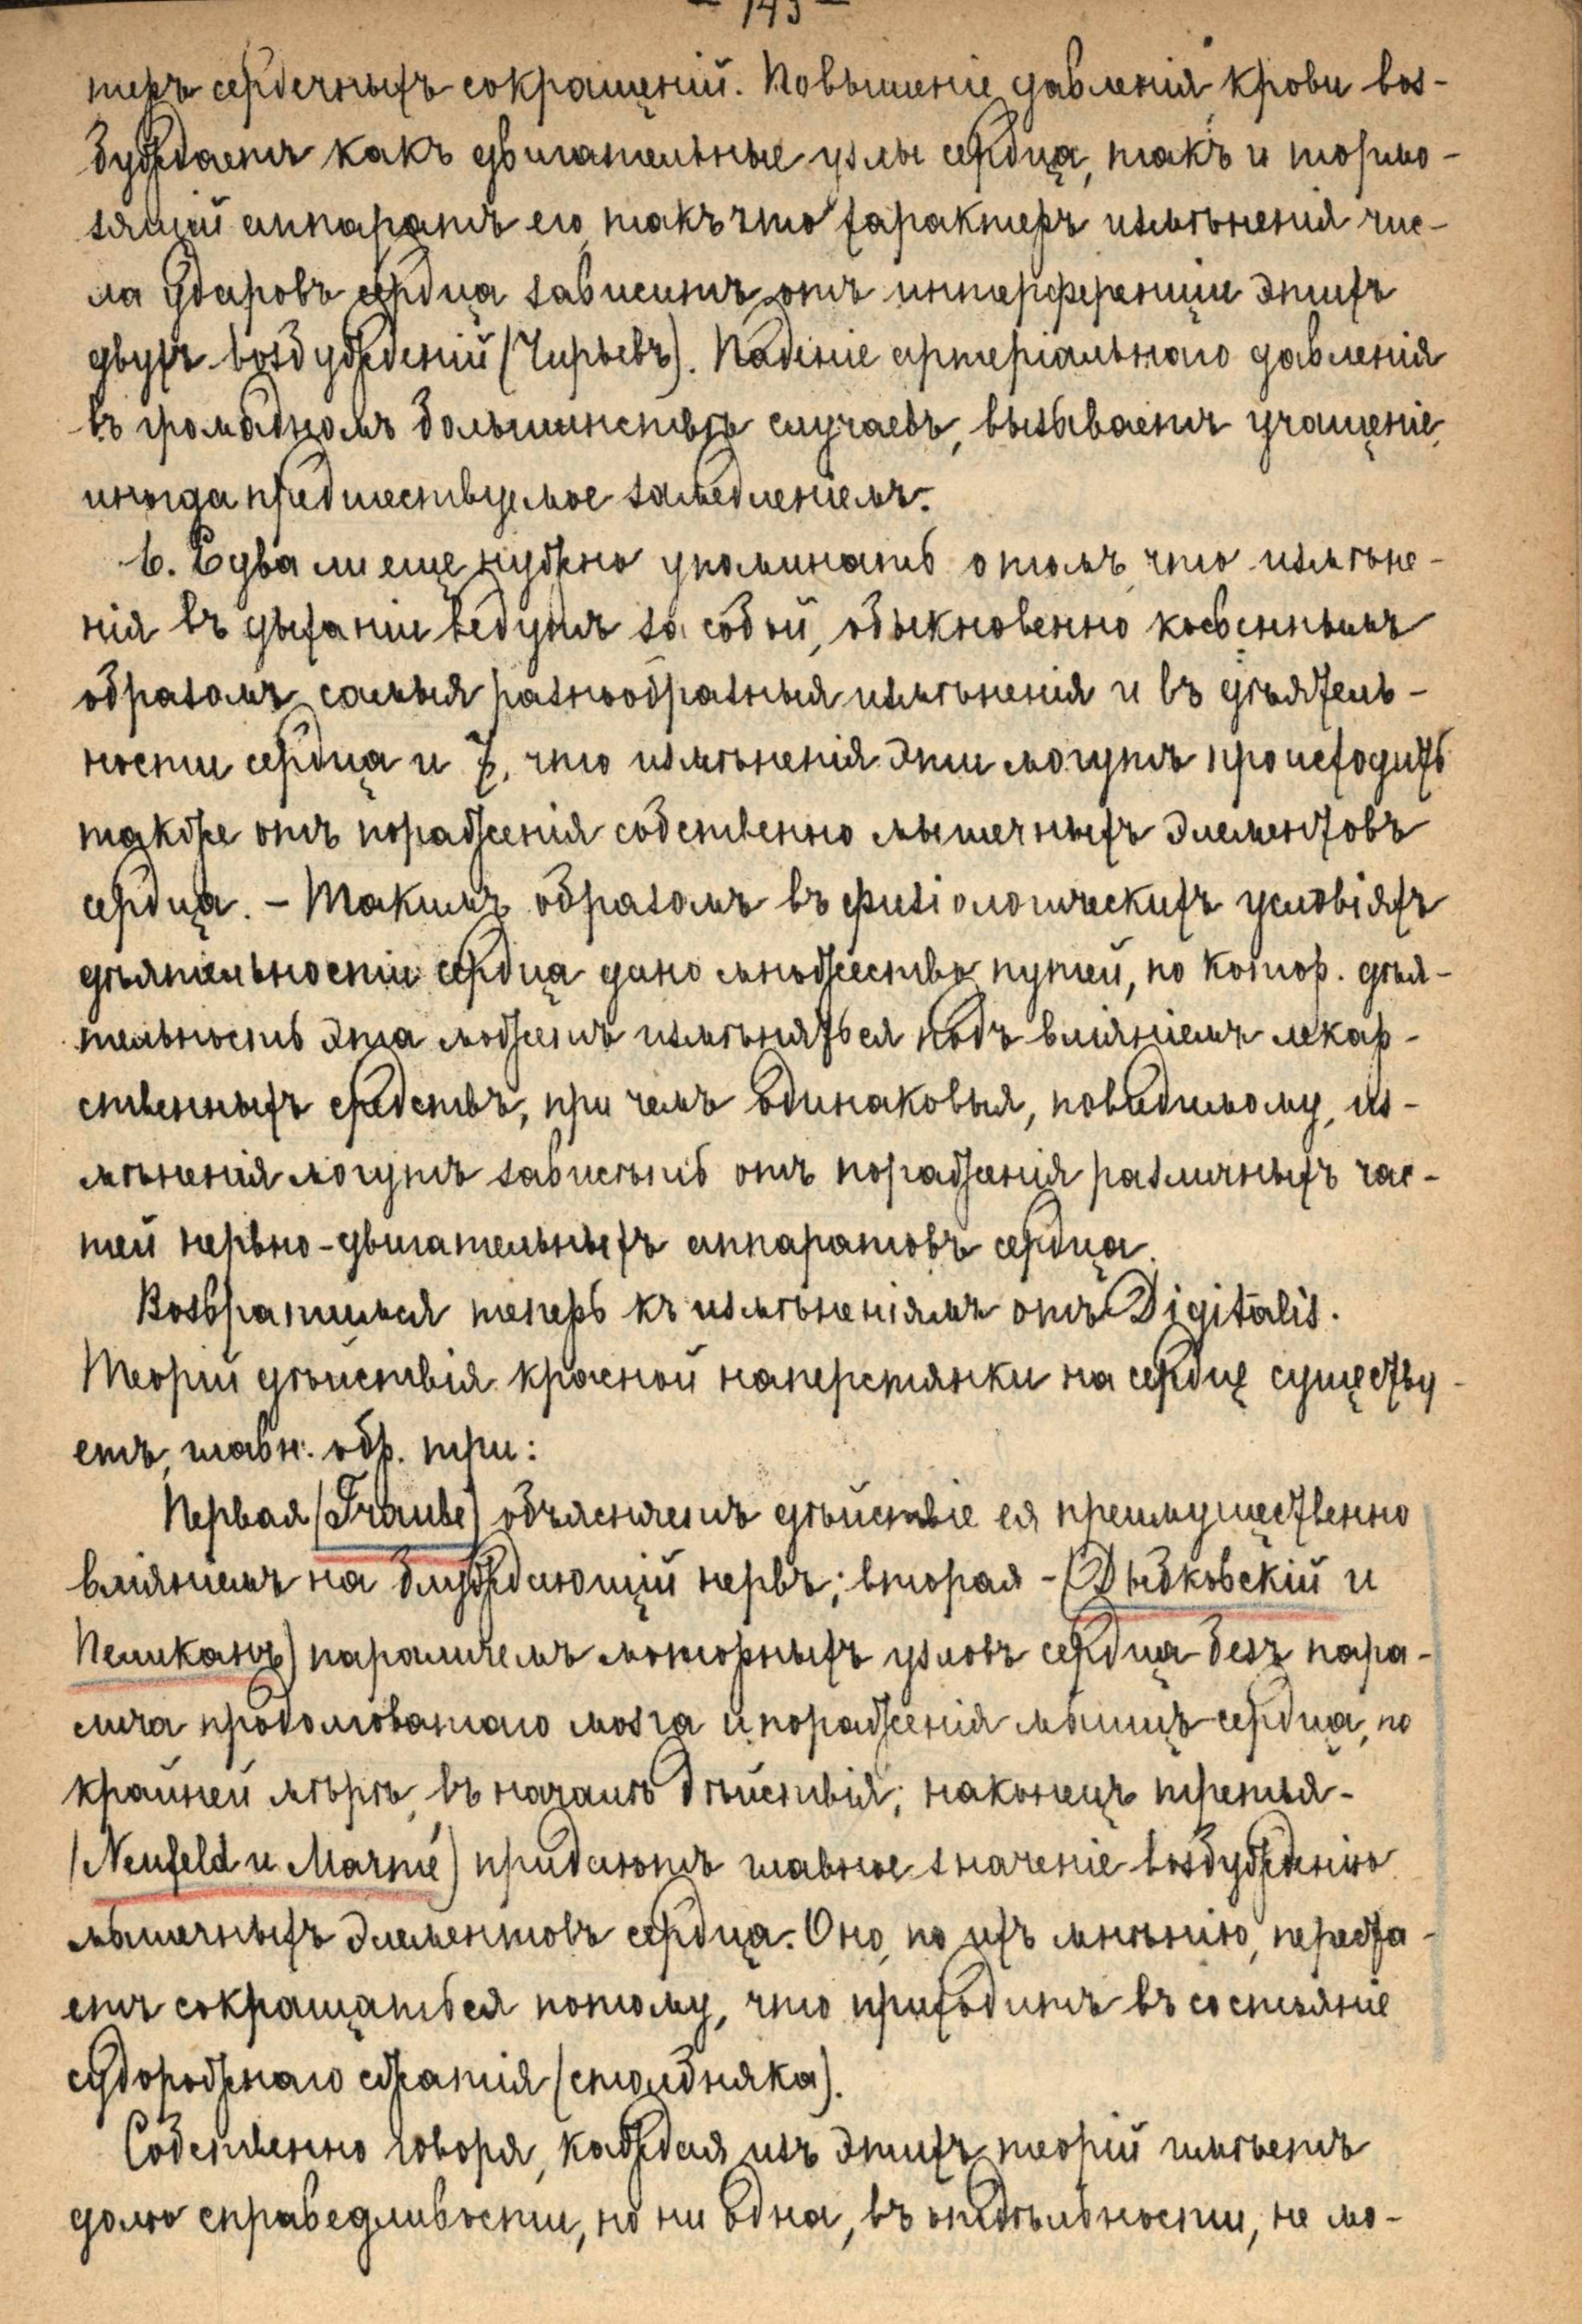 — 143 —
теръ сердечныхъ сокращеній. Повышеніе давленія крови воз-
буждаетъ какъ двигательные узлы сердца, такъ и тормо-
зящій аппаратъ его, такъ что характеръ измѣненія чис-
ла ударовъ сердца зависитъ отъ интерференціи этихъ
двухъ возбужденій (Чирьевъ). Паденіе артеріальнаго давленія
въ громадномъ большинствѣ случаевъ, вызываетъ учащеніе,
иногда предшествуемое замедленіемъ.
6. Едва ли еще нужно упоминать о томъ, что измѣне-
нія въ дыханіи ведутъ за собой, обыкновенно косвеннымъ
образомъ, самыя разнообразныя измѣненія и въ дѣятель-
ности сердца и 7, что измѣненія эти могутъ происходить
также отъ пораженія собственно мышечныхъ элементовъ
сердца. — Такимъ образомъ въ физіологическихъ условіяхъ
дѣятельности сердца дано множество путей, по котор. дѣя-
тельность эта можетъ измѣняться подъ вліяніемъ лекар-
ственныхъ средствъ, при чемъ одинаковыя, повидимому, из-
мѣненія могутъ зависѣть отъ пораженія различныхъ час-
тей нервно-двигательныхъ аппаратовъ сердца.
Возвратимся теперь къ измѣненіямъ отъ Digitalis.
Теорій дѣйствія красной наперстянки на сердце существу-
етъ, главн. обр. три:
Первая (Traube) объясняетъ дѣйствіе ея преимущественно
вліяніемъ на блуждающій нервъ; вторая - (Дыбковскій и
Пеликанъ) параличемъ моторныхъ узловъ сердца безъ пара-
лича продолговатаго мозга и пораженія мышцъ сердца, по
крайней мѣрѣ, въ началѣ дѣйствія; наконецъ третья -
(Neufeld и Marmé) придаютъ главное значеніе возбужденію
мышечныхъ элементовъ сердца. Оно, по ихъ мнѣнію, переста-
етъ сокращаться потому, что приходитъ въ состояніе
судорожнаго сжатія (столбняка).
Собственно говоря, каждая изъ этихъ теорій имѣетъ
долю справедливости, но ни одна, въ отдѣльности, не мо-